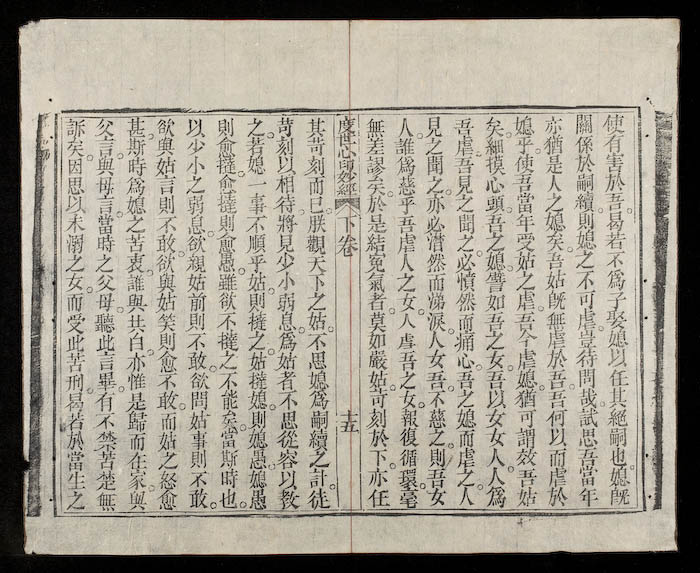 使有害於吾曷若不爲子娶媳以任其絕嗣也媳旣
關係於嗣續則媳之不可虐豈待問哉試思吾當年
亦猶是人之媳矣吾姑旣無虐於吾吾何以而虐於
媳乎使吾當年受姑之虐吾今虐媳猶可謂效吾姑
矣細摸心頭吾之媳譬如吾之女吾以女女人人爲
吾虐吾見之聞之必憤然而痛心吾之媳而虐之人
見之聞之亦必潸然而涕淚人女吾不慈之則吾女
人誰爲慈乎吾虐人之女人虐吾之女報復循環毫
無差謬矣於是結寃氣者莫如嚴姑苛刻於下亦任
度世心傳妙經 下卷 十五
其苛刻而已朕觀天下之姑不思媳爲嗣續之計徒
苛刻以相待將見少小弱息爲姑者不思從容以教
之若媳一事不順乎姑則撻之姑撻媳則媳愚媳愚
則愈撻愈撻則愈愚雖欲不撻之不能矣當斯時也
以少小之弱息欲親姑前則不敢欲問姑事則不敢
欲與姑言則不敢欲與姑笑則愈不敢而姑之怒愈
甚斯時爲媳之苦衷誰與共白亦惟是歸而在家與
父言與母言當時之父母聽此言畢有不禁苦楚無
訴矣因思以未溺之女而受此苦刑曷若於當生之